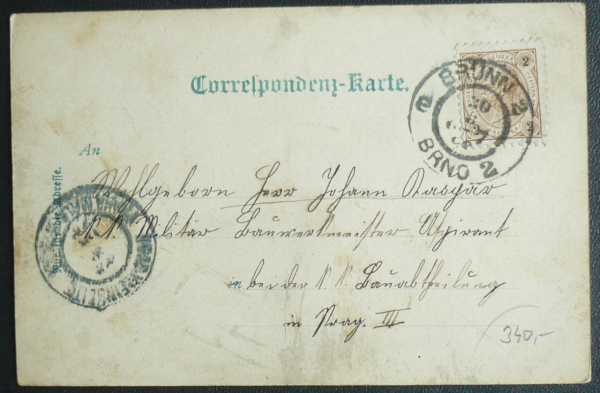 Correspondenz-Karte.
2
BRÜNN
BRNO 2
2 2
An
Nur für die Adresse.
Wohlgeborn Herr Johann Kaspar
k. k. Militär Bauwerkmeister Aspirant
bei der k. k. Bauabtheilung
in Prag. III
340,-